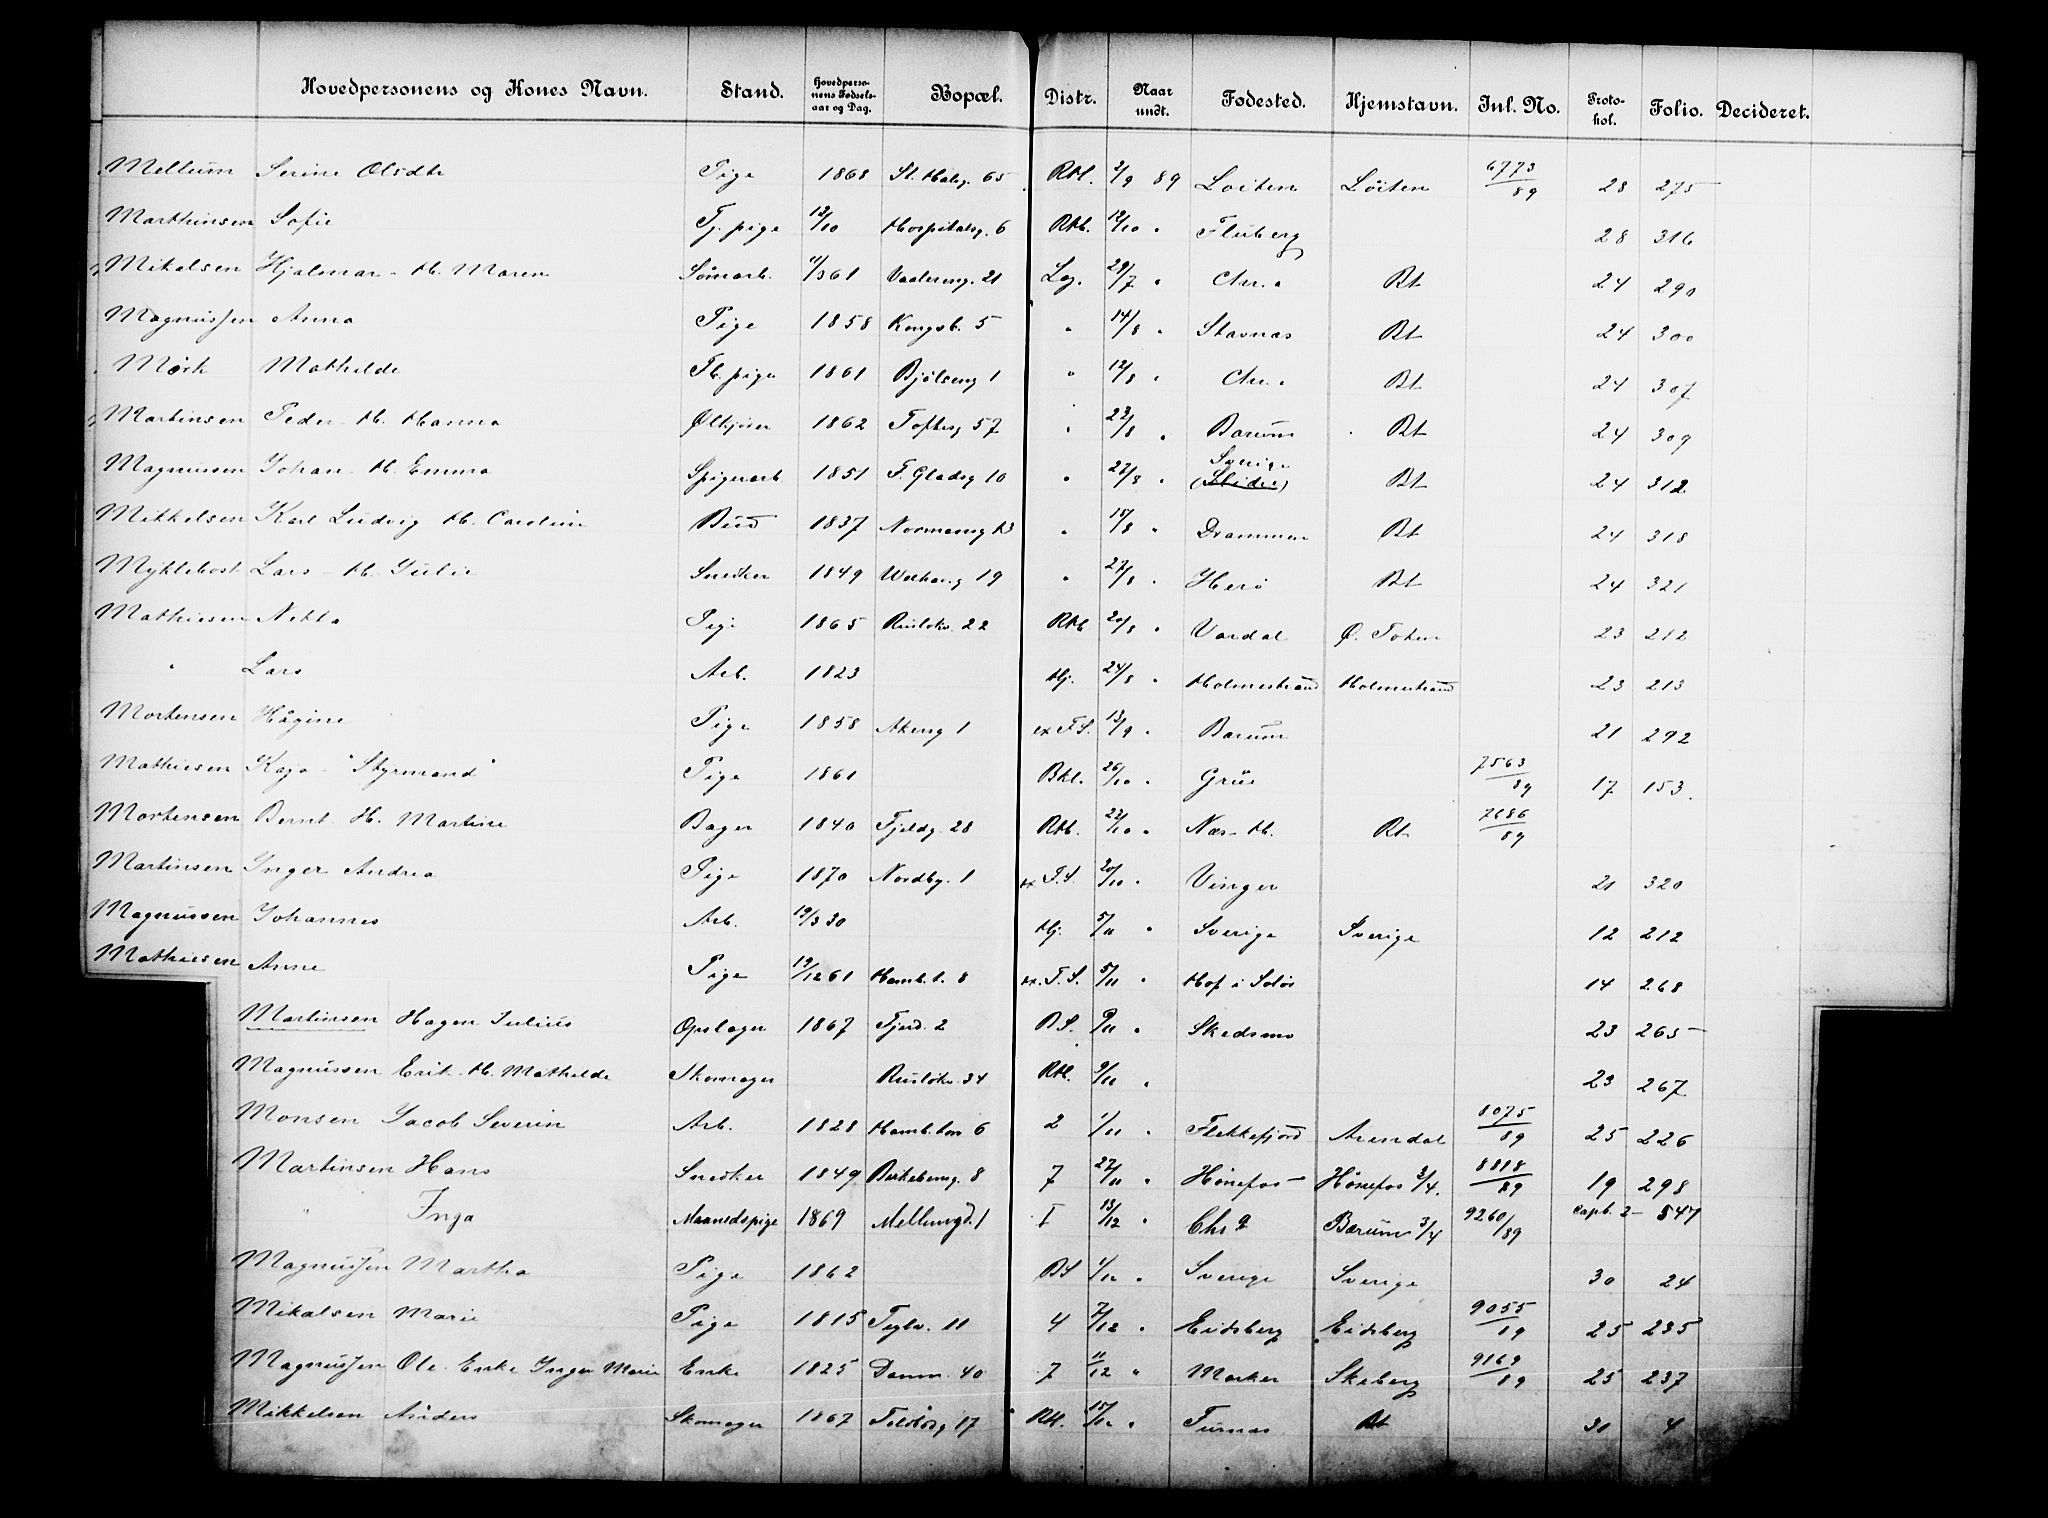 Hovedpersonens og Kones Navn. Stand. Hovedpersonens Fødselsaar og Dag. Bopæl. Distr. Naar undt. Fødested. Hjemstavn. Inl. No. Protokol. Folio. Decideret.
Mellum Serine Olsdtr Pige 1868 St. Halvg. 65 Rkl. 2/9 89 Loiten Löiten 6773/89 28 275
Marthinsen Sofie Tj. pige 12/10 Hospitalsg. 6 Rkl. 12/10 " Fluberg 28 316
Mikalsen Hjalmar - H. Maren Sömarb. 11/3 61 Vaalereng. 21 Lag. 29/7 " Chr.a Bt 24 290
Magnussen Anna Pige 1858 Kongsb. 5 " 14/8 " Stavnas Bt 24 300
Mörk Mathilde Fb. pige 1861 Bjölseng 1 " 12/8 " Chr.a Bt 24 307
Martinsen Peder - H. Hanna Ølkjörer 1862 Tofteg 57 " 23/8 " Barum Bt 24 309
Magnussen Johan - H. Emma Spigerarb. 1851 F. Gladsg 10 " 27/8 " Sverige (Slidre) Bt 24 312
Mikkelsen Karl Ludvig H. Caroline Bud 1837 Normanng 13 " 15/8 " Drammen Bt 24 318
Myklebost Lars - H. Julie Snedker 1849 Welhavg 19 " 27/8 " Herö Bt 24 321
Mathiesen Netta Pige 1865 Ruslökv. 22 Rkl 20/8 " Vardal Ø. Toten 23 212
" Lars Arb. 1823 Hj. 24/8 " Holmestrand Holmestrand 23 213
Mortensen Hågine Pige 1858 Akersg 1 ex F.S. 13/9 " Barum 21 292
Mathiesen Kaja - "Styrmand" Pige 1861 Bkl. 26/10 " Grue 7563/89 17 153
Mortensen Bernt H. Martine Bager 1840 Fjeldg. 28 Rkl. 22/10 " Nes - H. Rt 7686/89
Martinsen Inger Andrea Pige 1870 Nordbg. 1 ex F.S. 20/10 " Vinger 21 320
Magnussen Johannes Arb. 19/3 30 Hj. 5/11 " Sverige Sverige 12 212
Mathiesen Anne Pige 19/12 61 Hamb.t. 8 ex. F.S. 5/11 " Hof i Solör 14 268
Martinsen Hagen Julius Opslager 1867 Fjerd. 2 B S. 9/11 " Skedsmo 23 265
Magnussen Erik - H. Mathilde Skomager Ruslökv. 34 Rkl. 9/11 " 23 267
Monsen Jacob Severin Arb. 1828 Hamb.ton 6 2 1/11 " Flekkefjord Arendal 8075/89 25 226
Martinsen Hans Snedker 1849 Birkebeing. 8 7 27/11 " Hönefos Hönefos 3/4. 8818/89 19 298
" Inga Maanedspige 1869 Mellumgd. 1 I 13/12 " Chr a Bærum 3/4 9260/89 Capb. 2 - 547
Magnussen Martha Pige 1862 BS 4/12 " Sverige Sverige 30 24
Mikalsen Marie Pige 1815 Teglv. 11 4 7/12 " Eidsberg Eidsberg 9055/89 25 235
Magnussen Ole Enke Inger Marie Enke 1825 Damm. 40 7 11/12 " Marker Skiberg 9169/89 25 237
Mikkelsen Anders Skomager 1867 Toldbog 17 Rkl. 15/12 " Furnas Bt 31 4